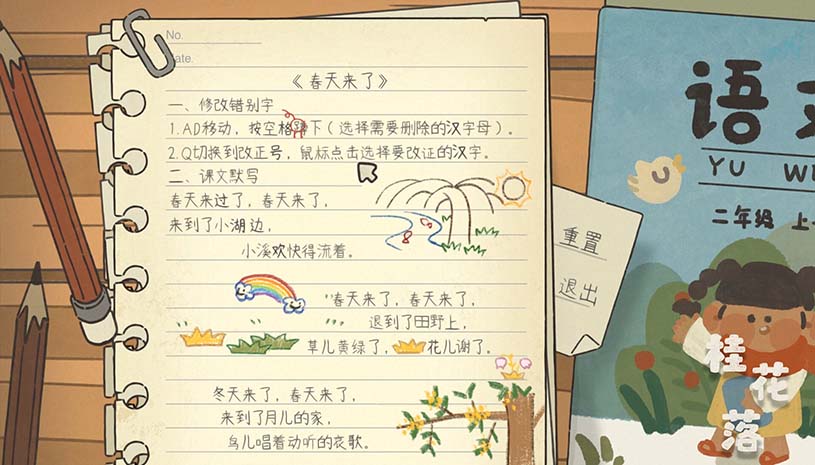 No.
Date.
《春天来了》
一、修改错别字
1.AD移动，按空格跳下（选择需要删除的汉字母）。
2.Q切换到改正号，鼠标点击选择要改证的汉字。
二、课文默写
春天来过了，春天来了，
来到了小湖边，
小溪欢快得流着。
春天来了，春天来了，
退到了田野上，
草儿黄绿了，花儿谢了。
冬天来了，春天来了，
来到了月儿的家，
鸟儿唱着动听的夜歌。
重置
退出
语
YU W
二年级 上
桂花落